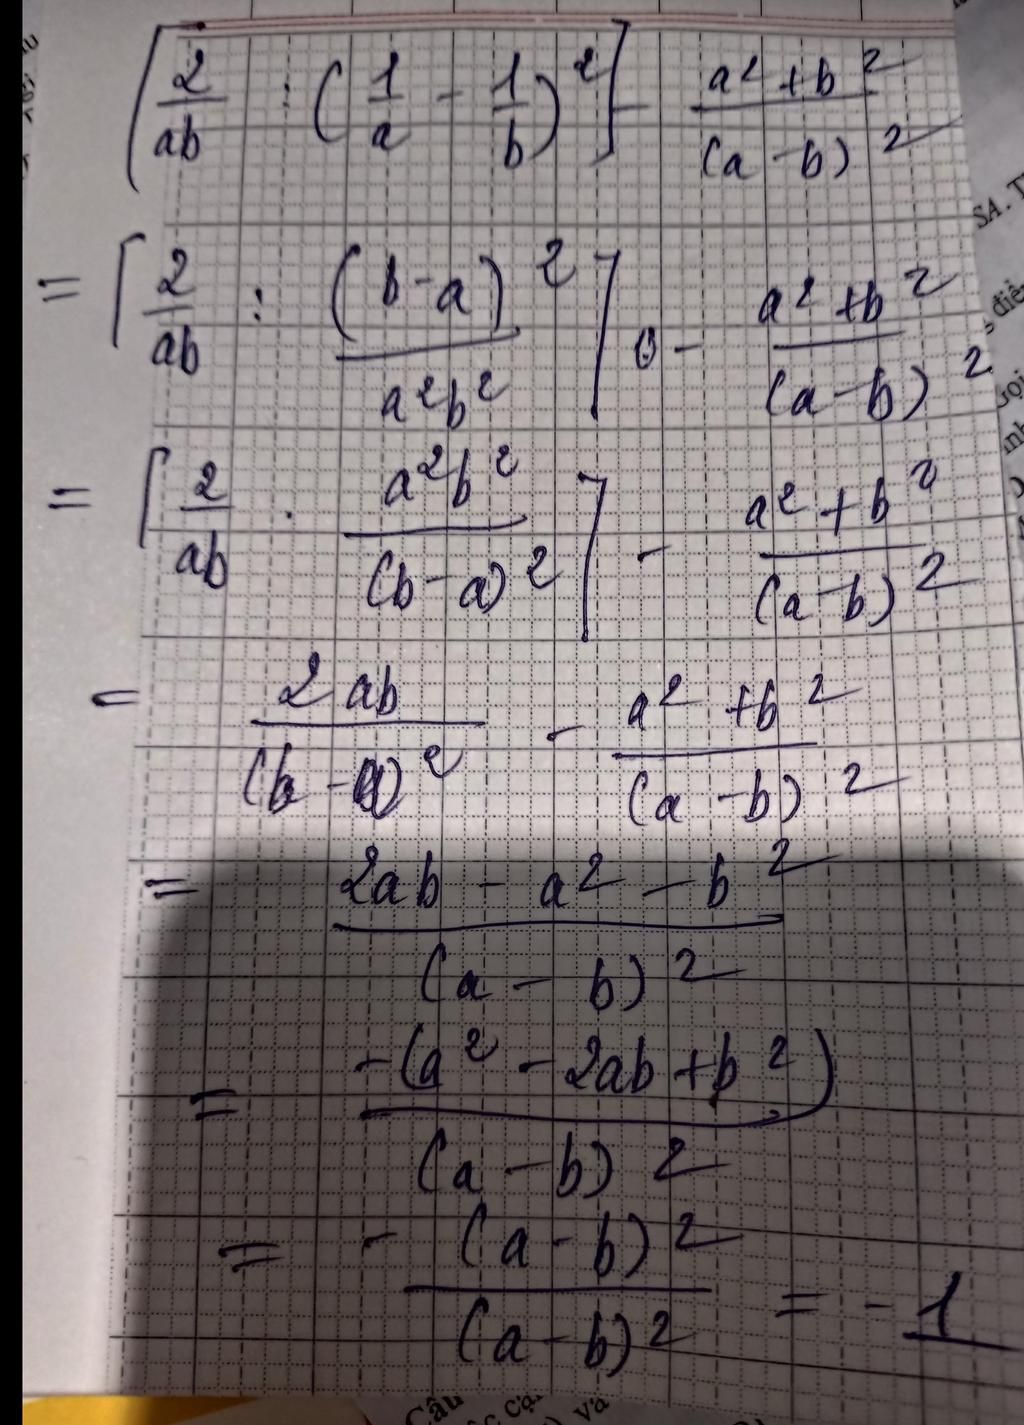 [2/ab : (1/a - 1/b)²] - (a² + b²)/(a - b)²
= [2/ab : (b - a)²/a²b²] - (a² + b²)/(a - b)²
= [2/ab . a²b²/(b - a)²] - (a² + b²)/(a - b)²
= 2ab/(b - a)² - (a² + b²)/(a - b)²
= (2ab - a² - b²)/(a - b)²
= -(a² - 2ab + b²)/(a - b)²
= - (a - b)²/(a - b)² = - 1
SA. T
điê
Câu
và